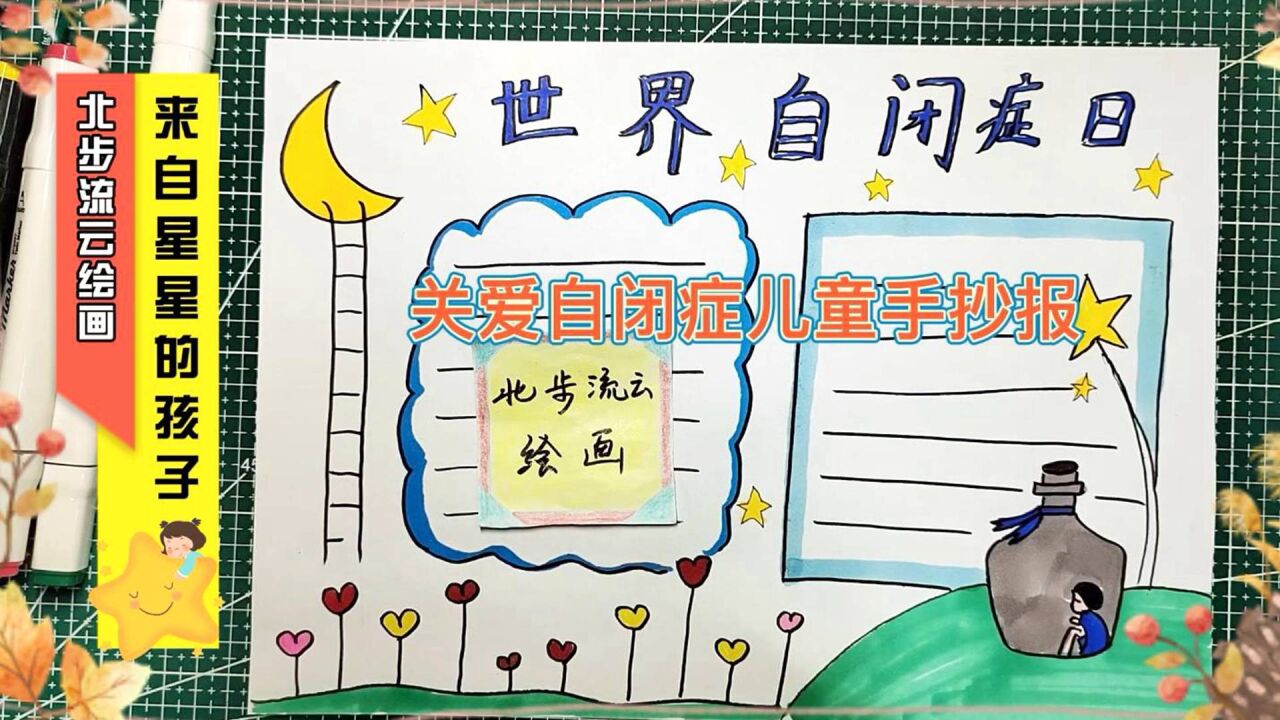 世界自闭症日
关爱自闭症儿童手抄报
北步流云
绘画
来自星星的孩子
北步流云绘画